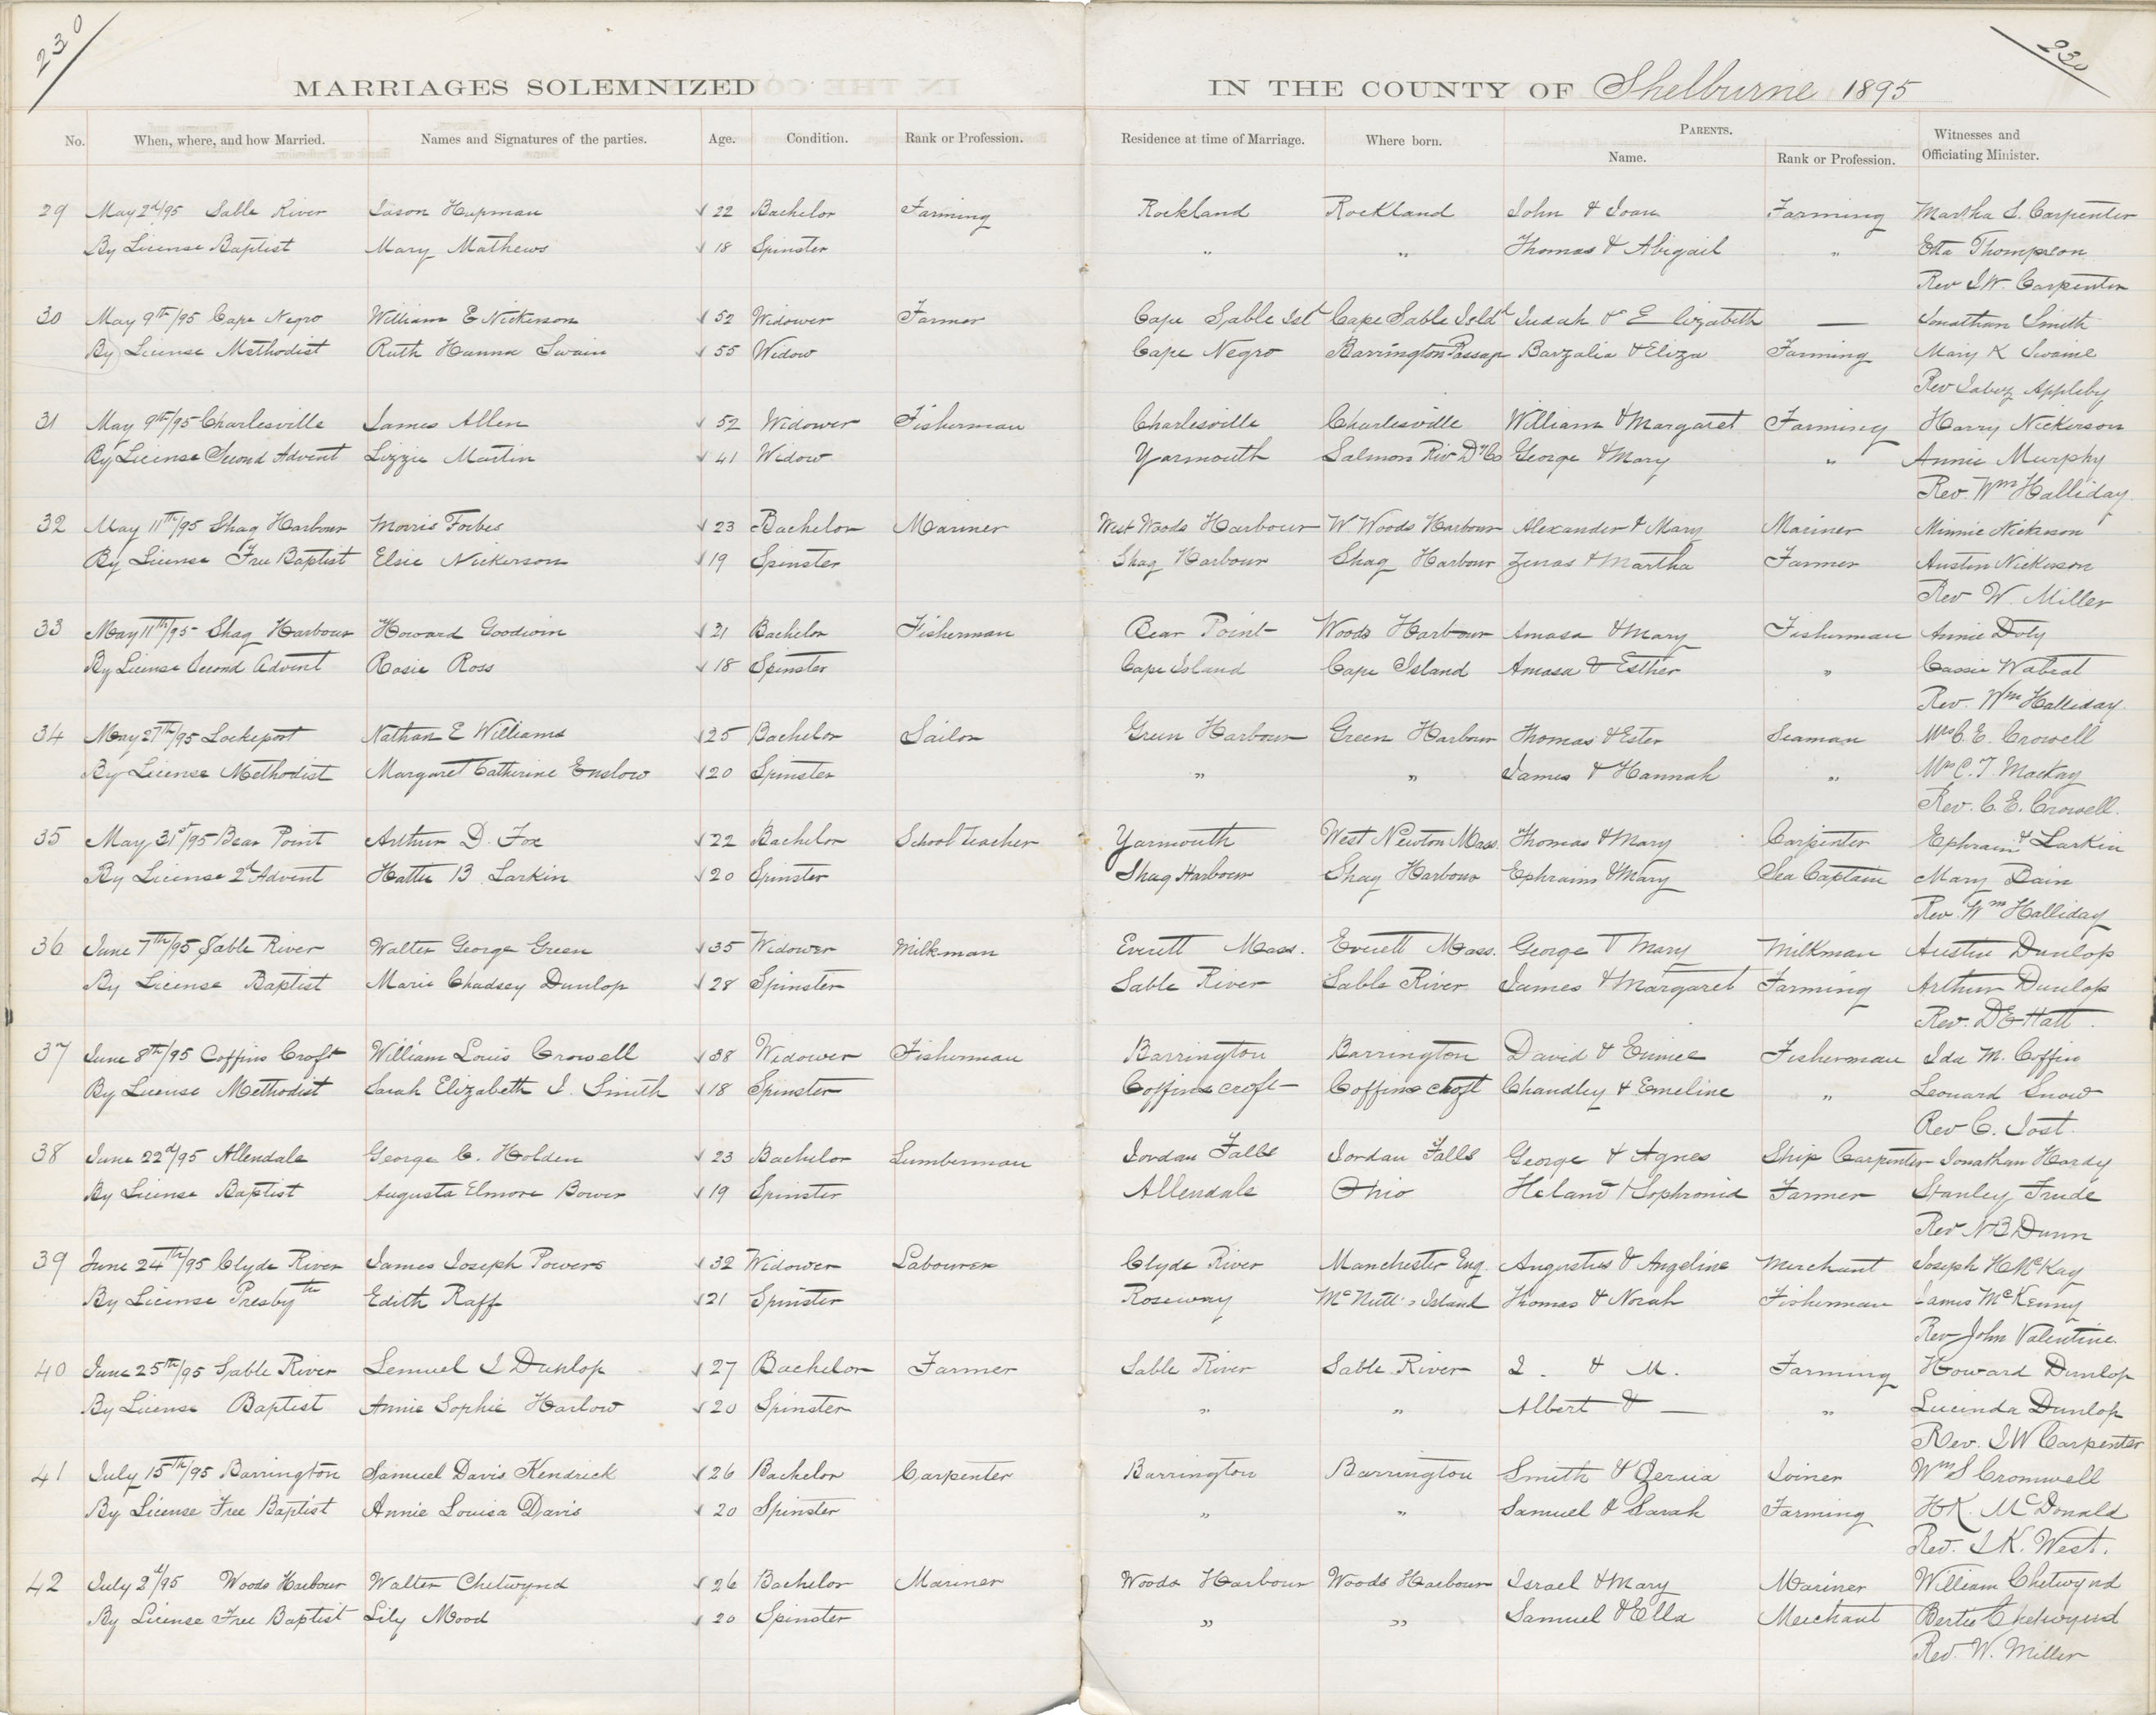 230
230
MARRIAGES SOLEMNIZED IN THE COUNTY OF Shelburne 1895
No. When, where, and how Married. Names and Signatures of the parties. Age. Condition. Rank or Profession. Residence at time of Marriage. Where born. PARENTS. Name. Rank or Profession. Witnesses and Officiating Minister.
29 May 2d/95 Sable River Jason Hupman 22 Bachelor Farming Rockland Rockland John & Joan Farming Martha S. Carpenter
By License Baptist Mary Mathews 18 Spinster " " Thomas & Abigail " Etta Thompson
Rev I.W. Carpenter
30 May 9th/95 Cape Negro William E Nickerson 52 Widower Farmer Cape Sable Isl Cape Sable Isld Judah & Elizabeth — Jonathan Smith
By License Methodist Ruth Hanna Swain 55 Widow Cape Negro Barrington Passage Barzalia & Eliza Farming Mary K Swaine
Rev Jabez Appleby
31 May 9th/95 Charlesville James Allen 52 Widower Fisherman Charlesville Charlesville William & Margaret Farming Harry Nickerson
By License Second Advent Lizzie Martin 41 Widow Yarmouth Salmon Riv D'y Co George & Mary " Annie Murphy
Rev. Wm Halliday
32 May 11th/95 Shag Harbour Morris Forbes 23 Bachelor Mariner West Woods Harbour W Woods Harbour Alexander & Mary Mariner Minnie Nickerson
By License Free Baptist Elsie Nickerson 19 Spinster Shag Harbour Shag Harbour Zenas & Martha Farmer Austin Nickerson
Rev W. Miller
33 May 11th/95 Shag Harbour Howard Goodwin 21 Bachelor Fisherman Bear Point Woods Harbour Amasa & Mary Fisherman Annie Doty
By License Second Advent Rosie Ross 18 Spinster Cape Island Cape Island Amasa & Esther " Cassie
Rev. Wm Halliday
34 May 27th/95 Lockeport Nathan E Williams 25 Bachelor Sailor Green Harbour Green Harbour Thomas & Ester Seaman Mrs C. E. Crowell
By License Methodist Margaret Catherine Enslow 20 Spinster " " James & Hannah " Mrs C. T. Mackay
Rev. C. E. Crowell.
35 May 31st/95 Bear Point Arthur D. Fox 22 Bachelor School teacher Yarmouth West Newton Mass. Thomas & Mary Carpenter Ephraim & Larkin
By License 2d Advent Hattie B Larkin 20 Spinster Shag Harbour Shag Harbour Ephraim & Mary Sea Captain Mary Bain
Rev. Wm Halliday
36 June 7th/95 Sable River Walter George Green 35 Widower Milkman Everett Mass. Everett Mass. George & Mary Milkman Austin Dunlop
By License Baptist Marie Chadsey Dunlop 28 Spinster Sable River Sable River James & Margaret Farming Arthur Dunlop
Rev. D E Hatt.
37 June 8th/95 Coffins Croft William Louis Crowell 38 Widower Fisherman Barrington Barrington David & Eunice Fisherman Ida M. Coffin
By License Methodist Sarah Elizabeth J. Smith 18 Spinster Coffinscroft Coffinscroft Chandley & Emeline " Leonard Snow
Rev C. Jost.
38 June 22d/95 Allendale George C. Holden 23 Bachelor Lumberman Jordan Falls Jordan Falls George & Agnes Ship Carpenter Jonathan Hardy
By License Baptist Augusta Elmore Bower 19 Spinster Allendale Ohio & Sophronia Farmer Stanley Frude
Rev N B Dunn
39 June 24th/95 Clyde River James Joseph Powers 32 Widower Labourer Clyde River Manchester Eng. Augustus & Angeline Merchant Joseph H McKay
By License Presbyth Edith Raff 21 Spinster Roseway McNutt's Island Thomas & Norah Fisherman James McKenny
Rev John Valentine.
40 June 25th/95 Sable River Lemuel I Dunlop 27 Bachelor Farmer Sable River Sable River I. & M. Farming Howard Dunlop
By License Baptist Annie Sophie Harlow 20 Spinster " " Albert & — " Lucinda Dunlop
Rev. I W Carpenter
41 July 15th/95 Barrington Samuel Davis Kendrick 26 Bachelor Carpenter Barrington Barrington Smith & Zeruia Joiner Wm S Cromwell
By License Free Baptist Annie Louisa Davis 20 Spinster " " Samuel & Sarah Farming H K. McDonald
Rev. I K. West.
42 July 2d/95 Woods Harbour Walter Chetwynd 26 Bachelor Mariner Woods Harbour Woods Harbour Israel & Mary Mariner William Chetwynd
By License Free Baptist Lily Mood 20 Spinster " " Samuel & Ella Merchant Bertie Chetwynd
Rev. W. Miller